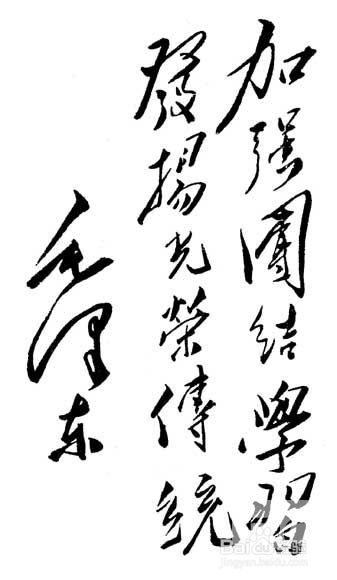 加强團结學習
發揚光榮傳統
毛澤东
Baidu经验
jingyan.baidu.com